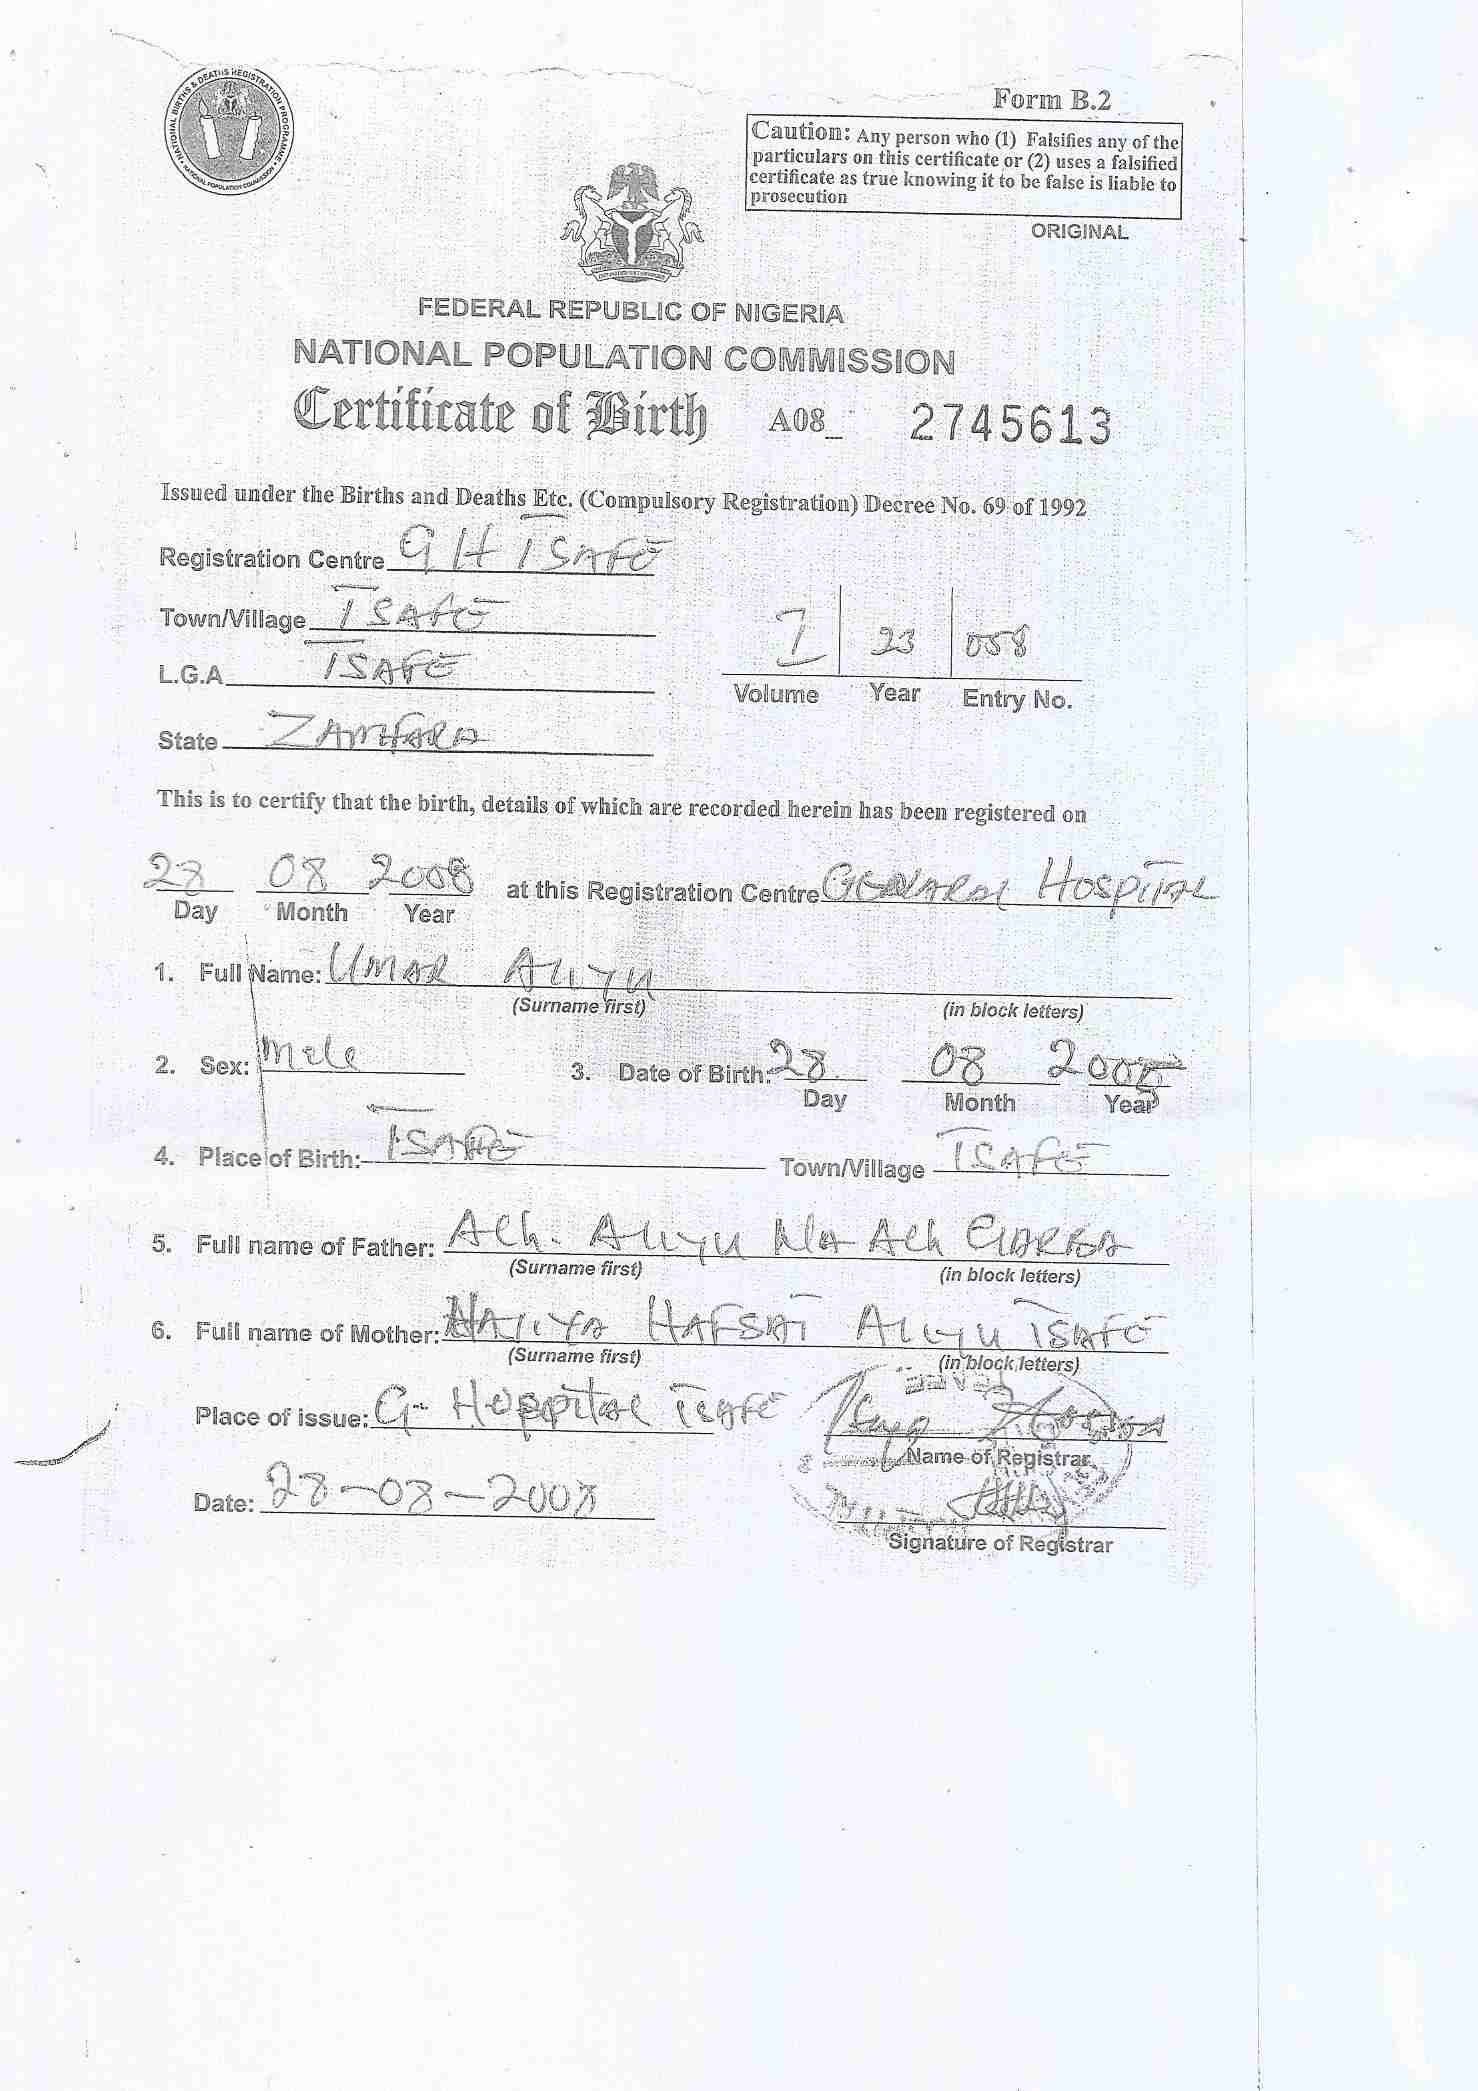 NATIONAL BIRTHS & DEATHS REGISTRATION PROGRAMME
NATIONAL POPULATION COMMISSION
Form B.2
Caution: Any person who (1) Falsifies any of the
particulars on this certificate or (2) uses a falsified
certificate as true knowing it to be false is liable to
prosecution
ORIGINAL
FEDERAL REPUBLIC OF NIGERIA
NATIONAL POPULATION COMMISSION
Certificate of Birth A08_ 2745613
Issued under the Births and Deaths Etc. (Compulsory Registration) Decree No. 69 of 1992
Registration Centre G H TSAFE
Town/Village TSAFE
L.G.A TSAFE
1 23 058
Volume Year Entry No.
State ZAMFARA
This is to certify that the birth, details of which are recorded herein has been registered on
28 08 2008 at this Registration Centre GENARAL HOSPITAL
Day Month Year
1. Full Name: UMAR ALIYU
(Surname first) (in block letters)
2. Sex: Male 3. Date of Birth: 28 08
Day Month Year
4. Place of Birth: TSAFE Town/Village TSAFE
5. Full name of Father: Alh. ALIYU NA Alh GARBA
(Surname first) (in block letters)
6. Full name of Mother: HAJIYA HAFSAT ALIYU TSAFE
(Surname first) (in block letters)
Place of issue: G. HOSPITAL TSAFE
Name of Registrar
Date: 28-08-2008
Signature of Registrar